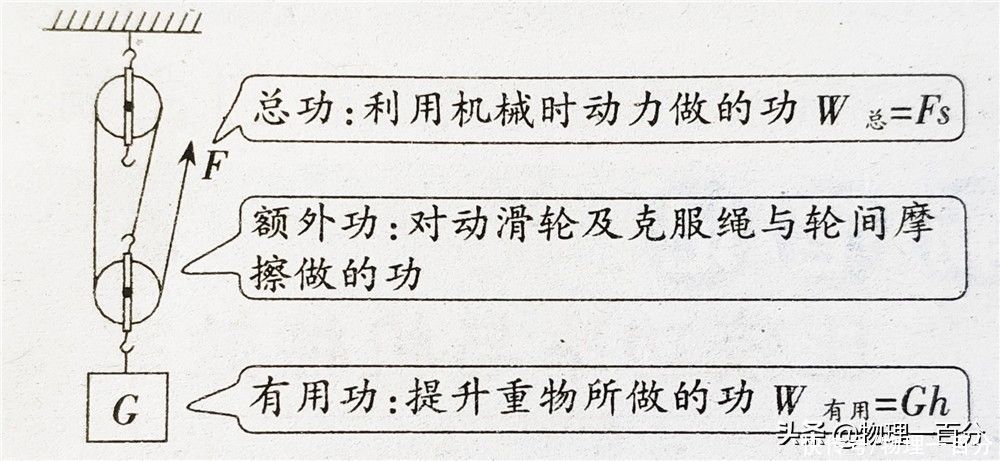 总功:利用机械时动力做的功 W 总=Fs
F
额外功:对动滑轮及克服绳与轮间摩
擦做的功
G
有用功:提升重物所做的功 W 有用=Gh
头条@物理一百分